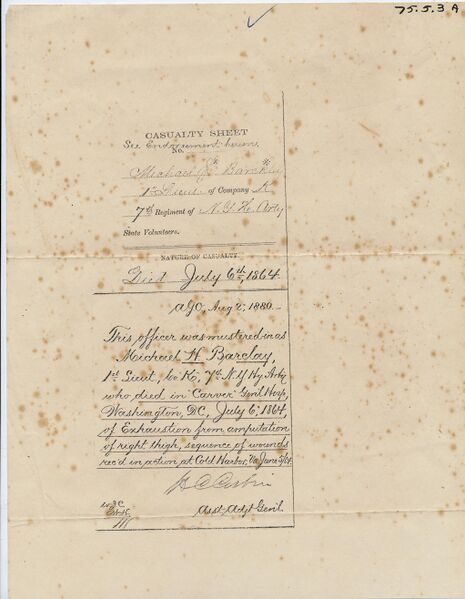 75.5.3 A
CASUALTY SHEET
See Endorsement hereon
No.
Michael
1st Lieut. of Company K
7th Regiment of N.Y. Hv. Arty
State Volunteers.
NATURE OF CASUALTY.
Died July 6th, 1864
AGO, Aug 2, 1880
This officer was mustered in as
Michael H. Barclay,
1st Lieut, Co K, 7th N.Y Hy Arty
who died in "Carver" Genl Hosp,
Washington, DC, July 6, 1864,
of Exhaustion from amputation
of right thigh, sequence of wounds
rec'd in action, at Cold Harbor, Va June 3/64
Asst. Adjt Genl.